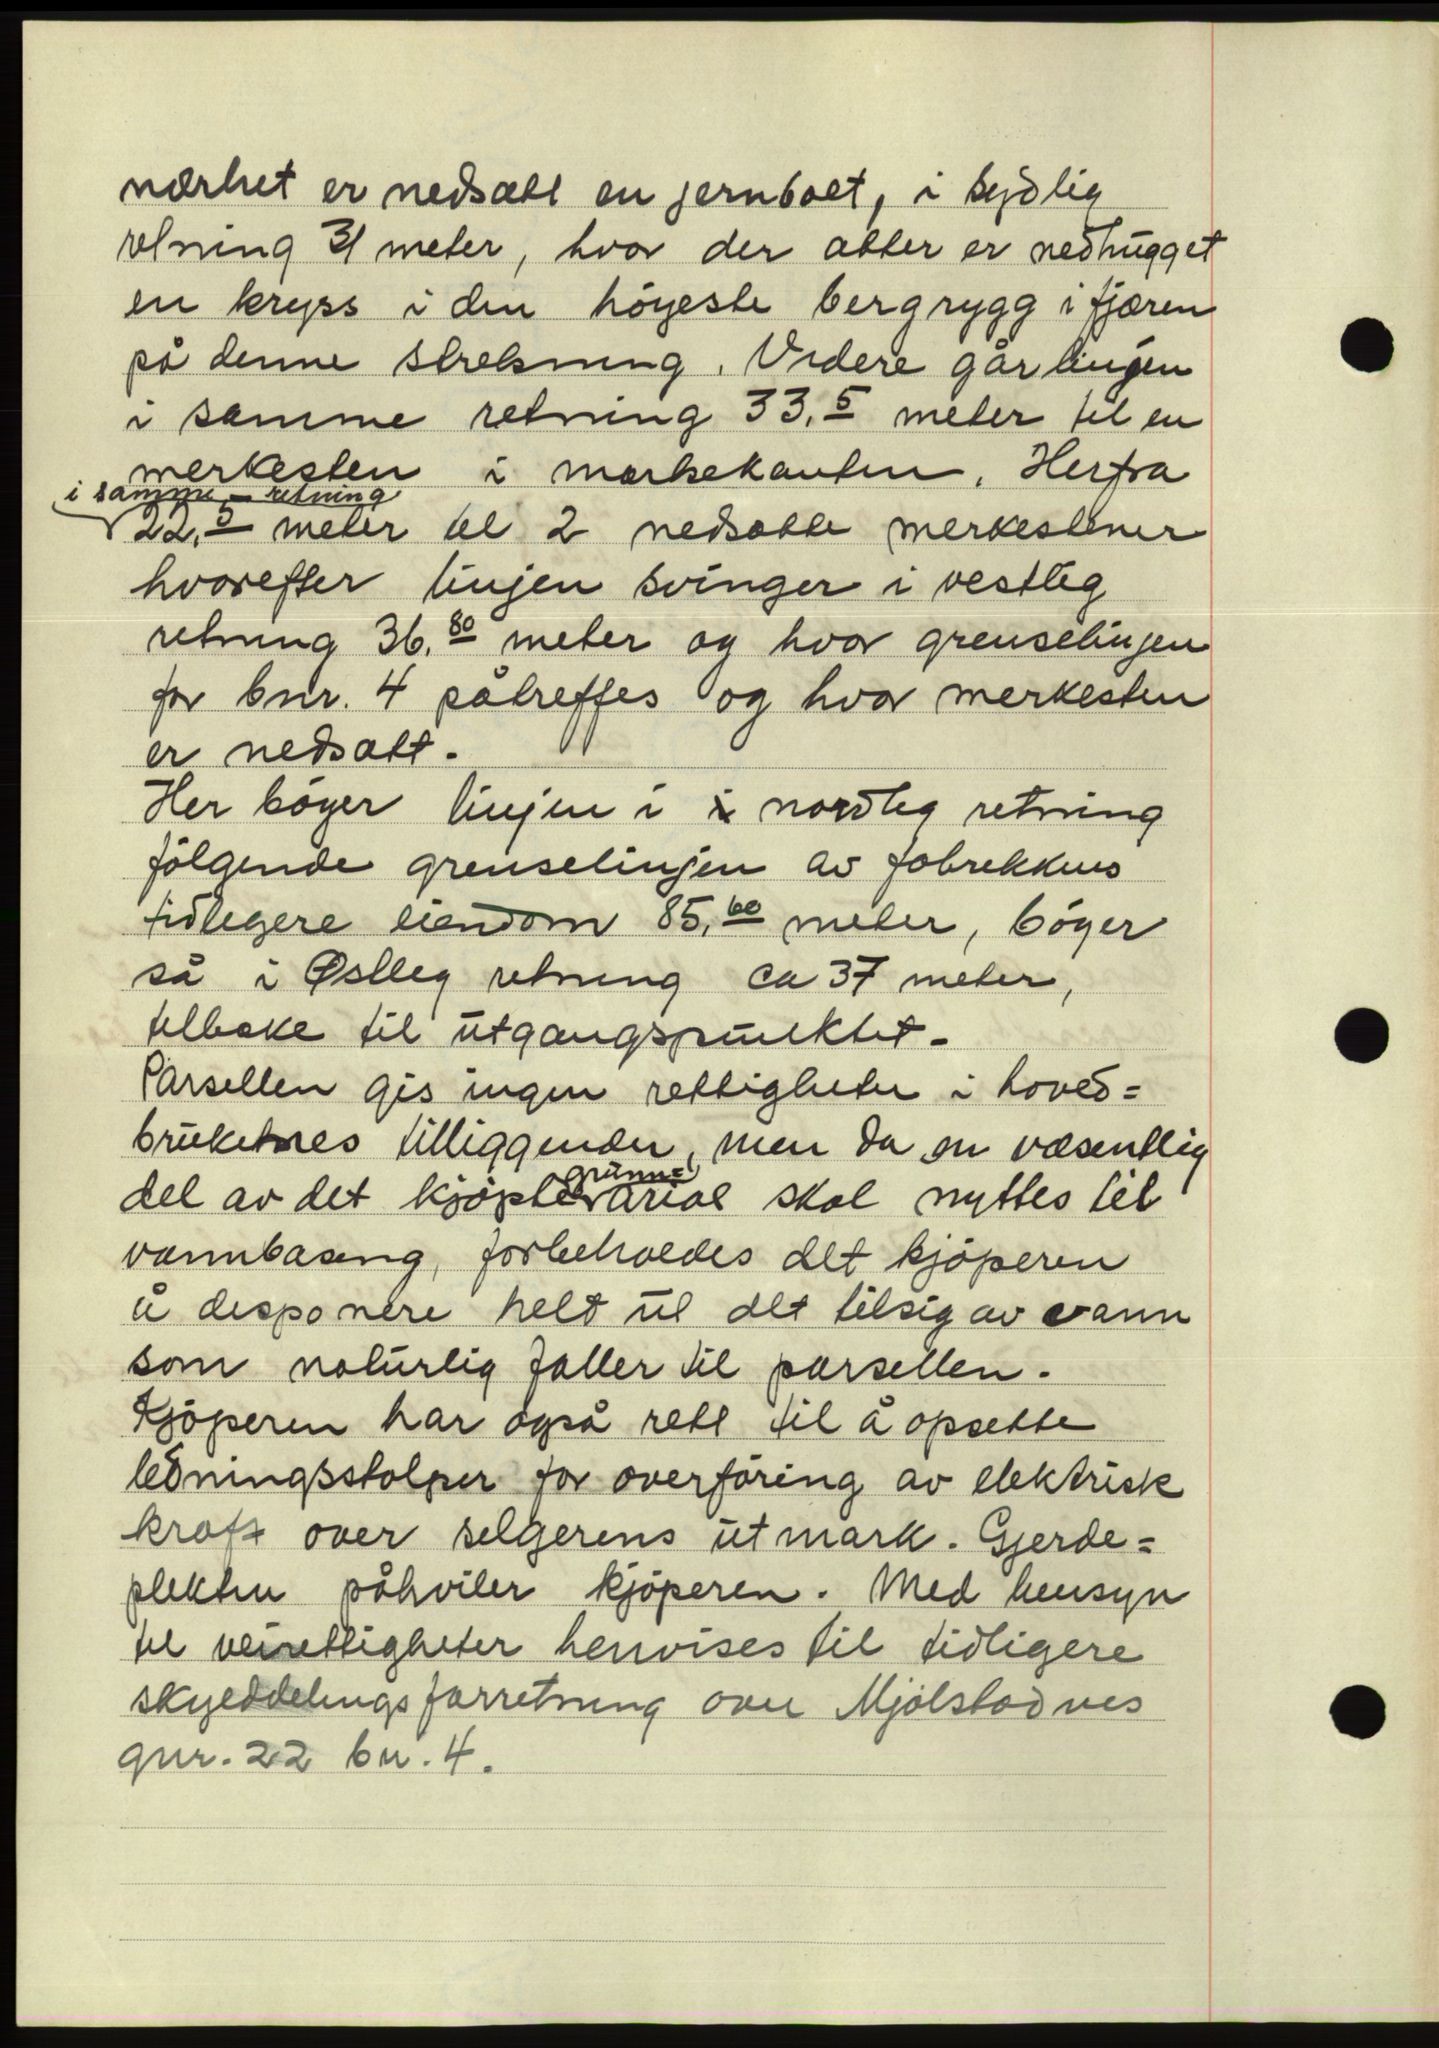 nærhet er nedsatt en jernbolt, i sydlig
retning 31 meter, hvor der atter er nedhugget
en kryss i den höyeste bergrygg i fjæren
på denne strekning. Videre går linjen
i samme retning 33,5 meter til en
merkesten i markekanten. Herfra
i samme retning
22,5 meter til 2 nedsatte merkestener
hvorefter linjen svinger i vestlig
retning 36,80 meter og hvor grenselinjen
for bnr. 4 påtreffes og hvor merkesten
er nedsatt.
Her böyer linjen i nordlig retning
fölgende grenselinjen av fabrikkens
tidligere eiendom 85,60 meter, böyer
så i Østlig retning ca 37 meter,
tilbake til utgangspunktet.
Parsellen gis ingen rettigheter i hoved=
brukets tilliggender, men da en væsentlig
grunn=
del av det kjöpte arial skal nyttes til
vannbaseng, forbeholdes det kjöperen
å disponere helt ut det tilsig av vann
som naturlig faller til parsellen.
Kjöperen har også rett til å opsette
ledningsstolper for overföring av elektrisk
kraft over selgerens utmark. Gjerde=
plikten påhviler kjöperen. Med hensyn
til veirettigheter henvises til tidligere
skylddelingsforretning over Mjölstadnes
gnr. 22 bn. 4.